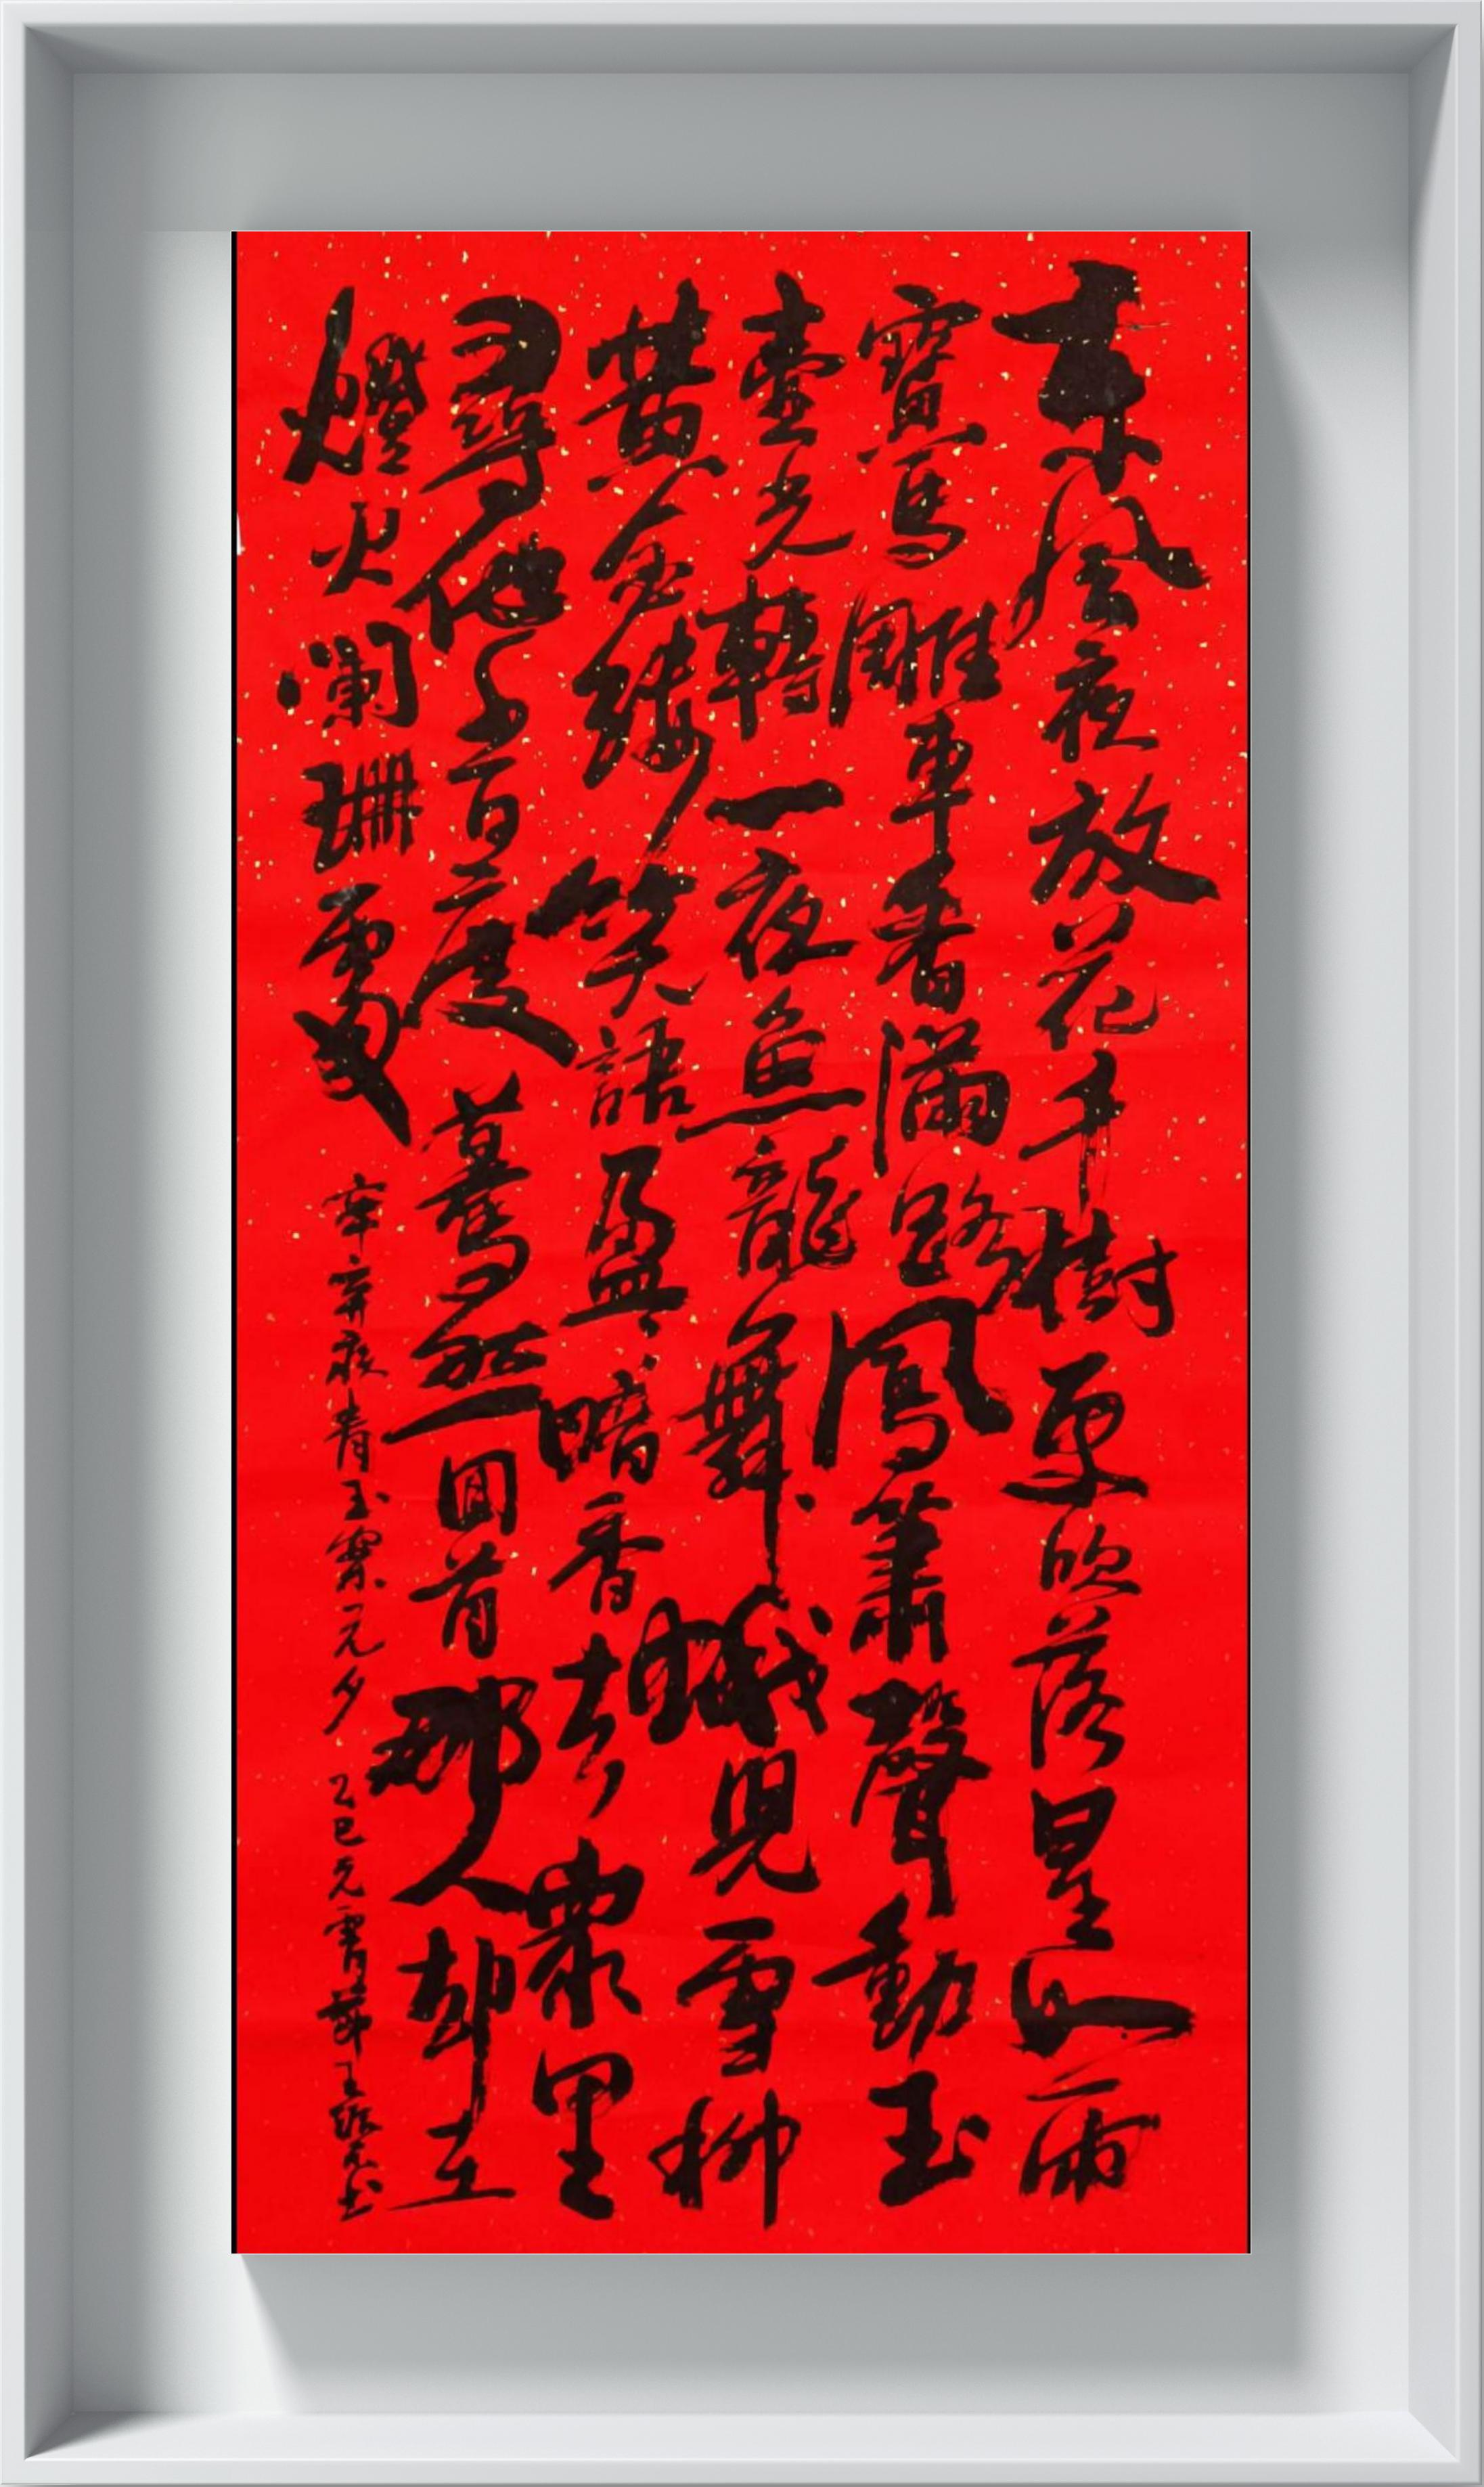 東風夜放花千樹更吹落星如雨
寶馬雕車香滿路鳳簫聲動玉
壺光轉一夜魚龍舞蛾兒雪柳
黄金縷笑語盈盈暗香去衆里
尋他千百度驀然回首那人却在
燈火闌珊處 辛棄疾青玉案元夕 乙巳元宵節王 書